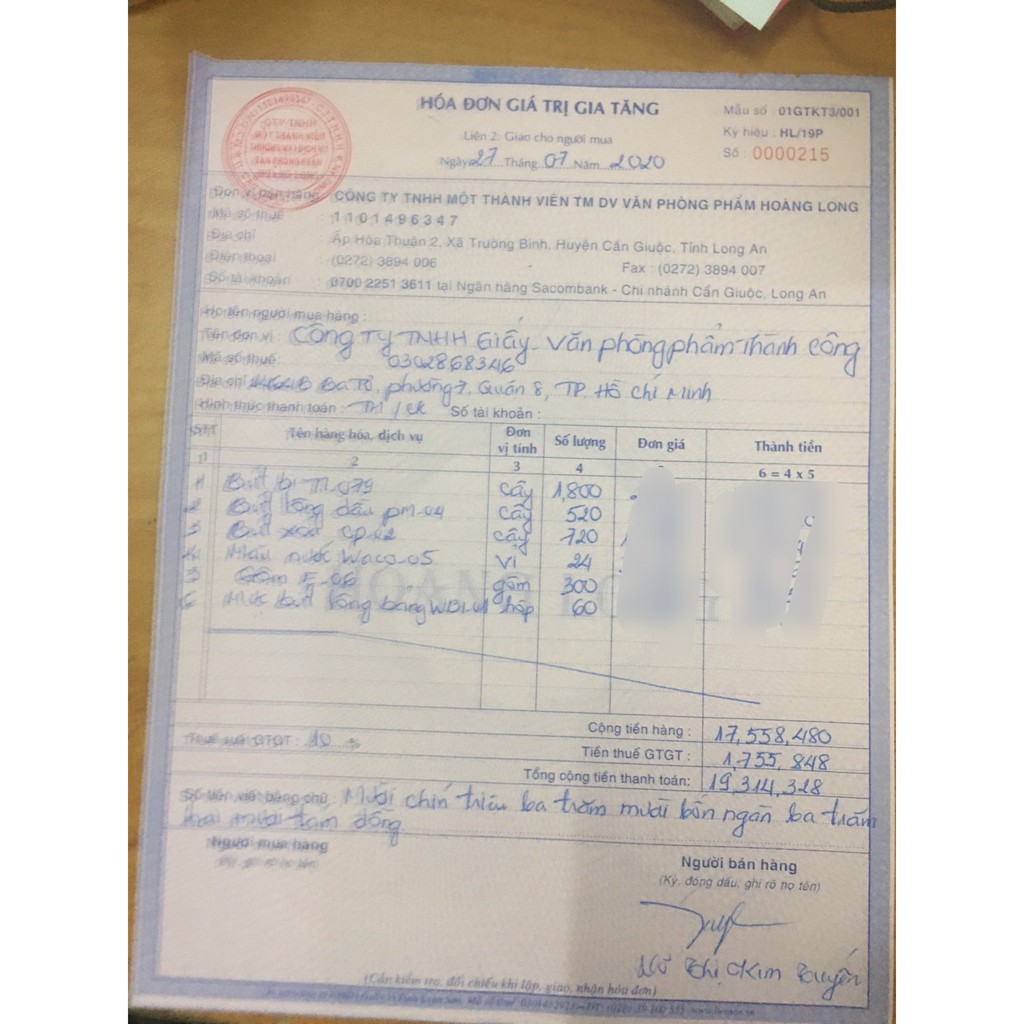 HÓA ĐƠN GIÁ TRỊ GIA TĂNG
Liên 2: Giao cho người mua
Ngày 27 Tháng 07 Năm 2020
Mẫu số : 01GTKT3/001
Ký hiệu : HL/19P
Số : 0000215
Đơn vị bán hàng : CÔNG TY TNHH MỘT THÀNH VIÊN TM DV VĂN PHÒNG PHẨM HOÀNG LONG
Mã số thuế : 1101496347
Địa chỉ : Ấp Hòa Thuận 2, Xã Trường Bình, Huyện Cần Giuộc, Tỉnh Long An
Điện thoại : (0272) 3894 006 Fax : (0272) 3894 007
Số tài khoản : 0700 2251 3611 tại Ngân hàng Sacombank - Chi nhánh Cần Giuộc, Long An
Họ tên người mua hàng :
Tên đơn vị : Công Ty TNHH Giấy - Văn phòng phẩm Thành Công
Mã số thuế : 0302868346
Địa chỉ Ba Tơ, phường 7, Quận 8, TP. Hồ Chí Minh
Hình thức thanh toán : TM / CK Số tài khoản :
STT Tên hàng hóa, dịch vụ Đơn vị tính Số lượng Đơn giá Thành tiền
1 2 3 4 6 = 4 x 5
1 Bút bi TL 079 Cây 1,800
2 Bút lông dầu PM-04 Cây 520
3 Bút xoá CP-02 Cây 720
4 Màu nước Waco-05 Vỉ 24
5 Gôm E-06 gôm 300
6 Mực bút lông bảng hộp 60
HOÀNG LONG
Cộng tiền hàng : 17,558,480
Thuế suất GTGT : 10 Tiền thuế GTGT : 1,755,848
Tổng cộng tiền thanh toán: 19,314,328
Số tiền viết bằng chữ : Mười chín triệu ba trăm mười bốn ngàn ba trăm
hai mươi tám đồng
Người mua hàng
Người bán hàng
(Ký, đóng dấu, ghi rõ họ tên)
Thị Kim
(Cần kiểm tra, đối chiếu khi lập, giao, nhận hóa đơn)